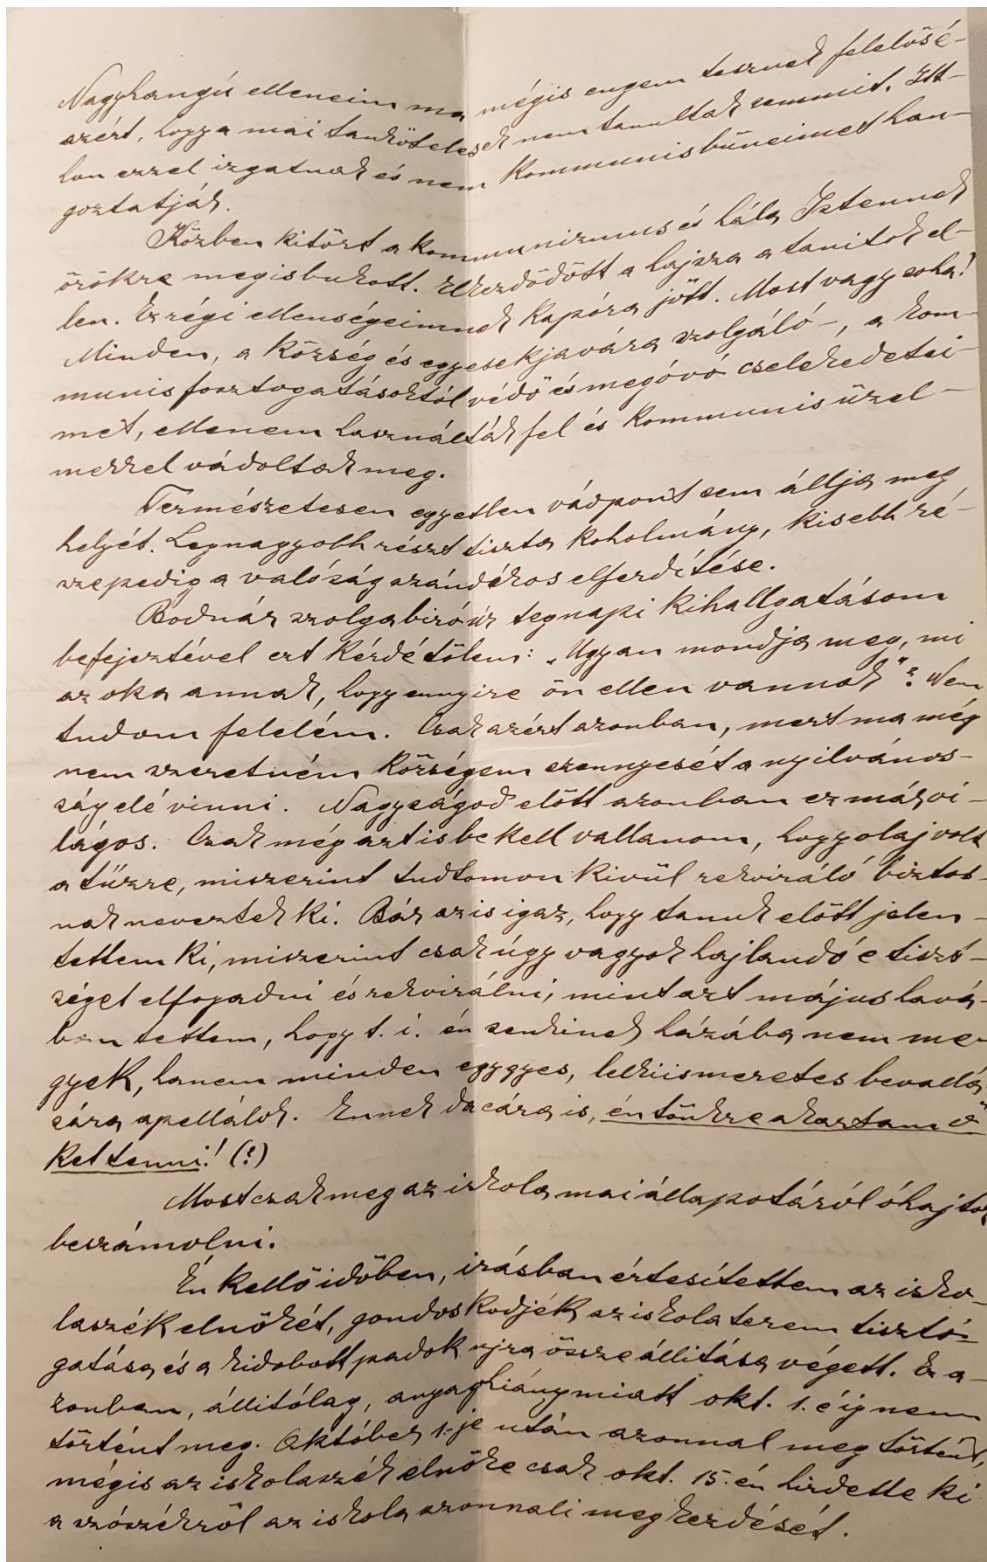 Nagyhangú elleneim ma mégis engem tesznek felelősé-
azért, hogy a mai tankötelesek nem tanultak semmit. Itt-
hon ezzel izgatnak és nem kommunis bűneimet han-
goztatják.
Közben kitört a kommunizmus és hála Istennek
örökre meg is bukott. Elkezdődött a hajsza a tanítók el-
len. Ez régi ellenségeimnek kapóra jött. Most vagy soha!
Minden, a község és egyesek javára szolgáló-, a kom-
munis fosztogatásoktól védő és megóvó cselekedetei-
met, ellenem használták fel és kommunis üzel-
mekkel vádoltak meg.
Természetesen egyetlen vádpont sem állja meg
helyét. Legnagyobb részt tiszta koholmány, kisebb ré-
sze pedig a valóság szándékos elferdítése.
Bodnár szolgabíró úr tegnapi kihallgatásom
befejeztével ezt kérdé tőlem: „Ugyan mondja meg, mi
az oka annak, hogy ennyire ön ellen vannak"? Nem
tudom felelém. Csak azért azonban, mert ma még
nem szeretném községem szennyesét a nyilvános-
ság elé vinni. Nagyságod előtt azonban ez már vi-
lágos. Csak még azt is be kell vallanom, hogy olaj volt
a tűzre, miszerint tudtomon kívül rekviráló biztos-
nak neveztek ki. Bár az is igaz, hogy tanuk előtt jelen-
tettem ki, miszerint csak úgy vagyok hajlandó e tiszt-
séget elfogadni és rekvirálni, mint azt május havá-
ban tettem, hogy t. i. én senkinek házába nem me-
gyek, hanem minden egygyes, lelkiismeretes bevallá-
sára apellálok. Ennek dacára is, én tönkre akartam ő-
ket tenni! (?)
Most csak meg az iskola mai állapotáról óhajtok
beszámolni.
Én kellő időben, irásban értesítettem az isko-
laszék elnökét, gondoskodjék az iskola terem tisztó-
gatása és a kidobott padok ujra össze állitása végett. Ez a-
zonban, állitólag, anyaghiány miatt okt. 1. éig nem
történt meg. Október 1-je után azonnal meg történt,
mégis az iskolaszék elnöke csak okt. 15-én hirdette ki
a szószékről az iskola azonnali megkezdését.